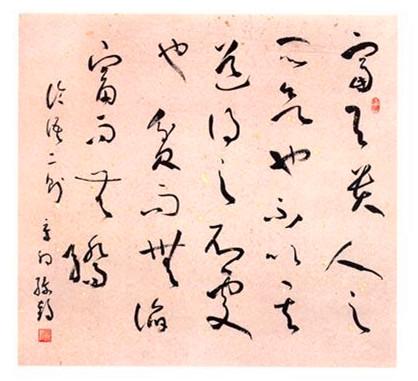 富與貴人之
所欲也不以其
道得之不處
也貧而無諂
富而無驕
論語二則